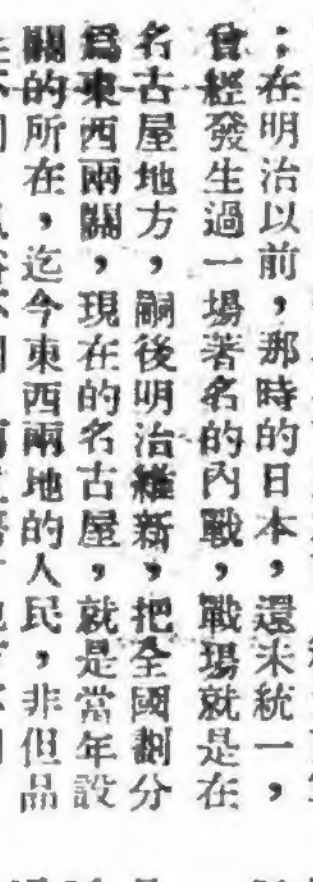 ；在明治以前，那時的日本，還未統一，
曾經發生過一場著名的內戰，戰場就是在
名古屋地方，嗣後明治維新，把全國劃分
爲東西兩關，現在的名古屋，就是當年設
關的所在，迄今東西兩地的人民，非但品